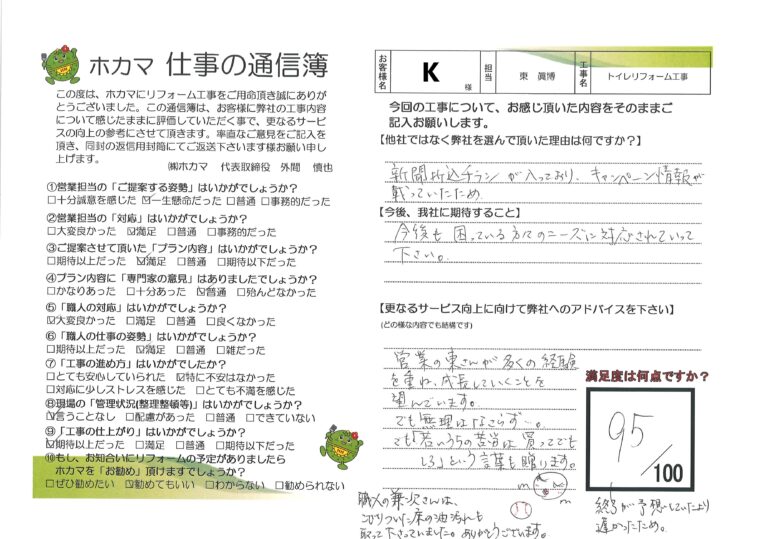 ホカマ 仕事の通信簿
この度は、ホカマにリフォーム工事をご用命頂き誠にありが
とうございました。この通信簿は、お客様に弊社の工事内容
について感じたままに評価していただく事で、更なるサービ
スの向上の参考にさせて頂きます。率直なご意見をご記入を
頂き、同封の返信用封筒にてご返送下さいます様お願い申し
上げます。
㈱ホカマ 代表取締役 外間 慎也
①営業担当の「ご提案する姿勢」はいかがでしょうか?
□十分誠意を感じた ☑一生懸命だった □普通 □事務的だった
②営業担当の「対応」はいかがでしょうか?
□大変良かった ☑満足 □普通 □事務的だった
③ご提案させて頂いた「プラン内容」はいかがでしょうか?
□期待以上だった ☑満足 □普通 □期待以下だった
④プラン内容に「専門家の意見」はありましたでしょうか?
□かなりあった □十分あった ☑普通 □殆んどなかった
⑤「職人の対応」はいかがでしょうか?
☑大変良かった □満足 □普通 □良くなかった
⑥「職人の仕事の姿勢」はいかがでしょうか?
□期待以上だった ☑満足 □普通 □雑だった
⑦「工事の進め方」はいかがでしたか?
□とても安心していられた ☑特に不安はなかった
□対応に少しストレスを感じた □とても不満を感じた
⑧現場の「管理状況(整理整頓等)」はいかがでしょうか?
☑言うことなし □配慮があった □普通 □できていない
⑨「工事の仕上がり」はいかがでしょうか?
☑期待以上だった □満足 □普通 □期待以下だった
⑩もし、お知合いにリフォームの予定がありましたら
ホカマを「お勧め」頂けますでしょうか?
□ぜひ勧めたい ☑勧めてもいい □わからない □勧められない
お客様名 K 様 担当 東 眞博 工事名 トイレリフォーム工事
今回の工事について、お感じ頂いた内容をそのままご
記入お願いします。
【他社ではなく弊社を選んで頂いた理由は何ですか?】
新聞折込チラシが入っており、キャンペーン情報が
載っていたため
【今後、我社に期待すること】
今後も困っている方々のニーズに対応されていって
下さい。
【更なるサービス向上に向けて弊社へのアドバイスを下さい】
(どの様な内容でも結構です)
営業の東さんが多くの経験
を重ね、成長していくことを
望んでいます。
でも無理はなさらず…。
でも「若いうちの苦労は買ってでも
しろ」という言葉も贈ります。
職人の兼次さんは、
こびりついた床の油汚れも
取って下さっていました。ありがとうございます。
満足度は何点ですか?
95/100
終了が予想していたより
遅かったため。